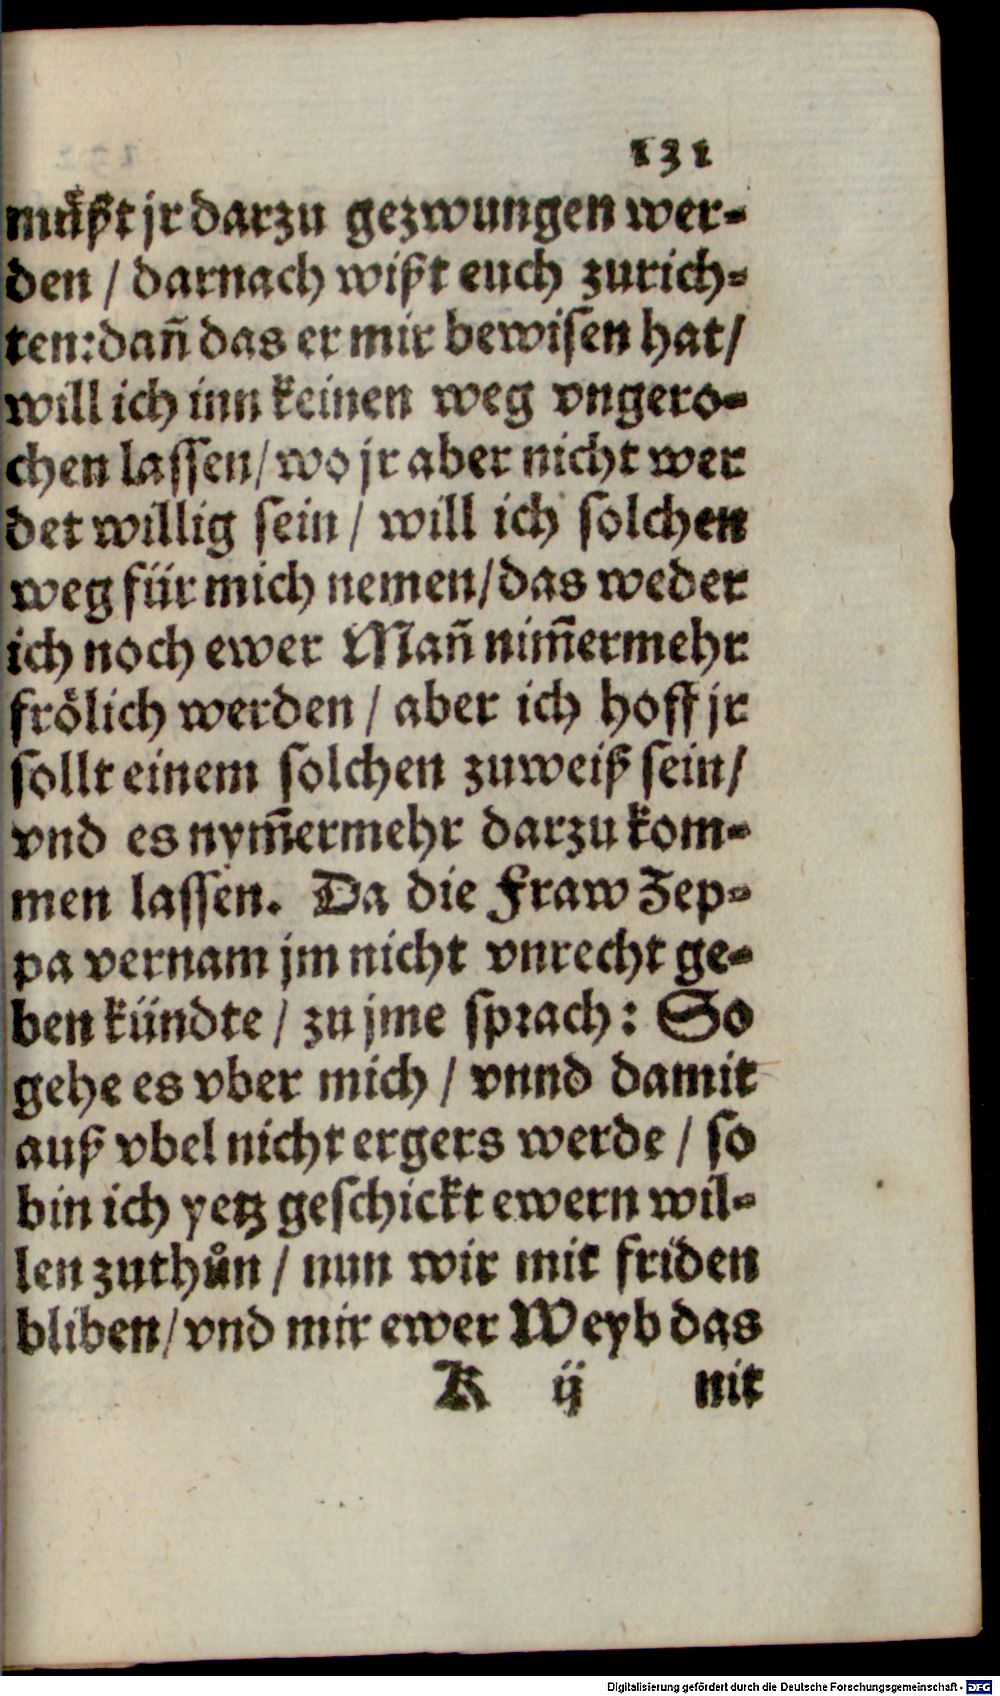 131
muͤßt jr darzu gezwungen wer-
den / darnach wißt euch zurich-
ten: dañ das er mir bewisen hat /
will ich inn keinen weg vngero-
chen lassen / wo jr aber nicht wer
det willig sein / will ich solchen
weg für mich nemen / das weder
ich noch ewer Mañ nim̃ermehr
froͤlich werden / aber ich hoff jr
sollt einem solchen zuweiß sein /
vnd es nym̃ermehr darzu kom-
men lassen. Da die Fraw Zep-
pa vernam jm nicht vnrecht ge-
ben kündte / zu jme sprach: So
gehe es vber mich / vnnd damit
auß vbel nicht ergers werde / so
bin ich yetz geschickt ewern wil-
len zuthůn / nun wir mit friden
bliben / vnd mir ewer Weyb das
K ij nit
Digitalisierung gefördert durch die Deutsche Forschungsgemeinschaft - DFG